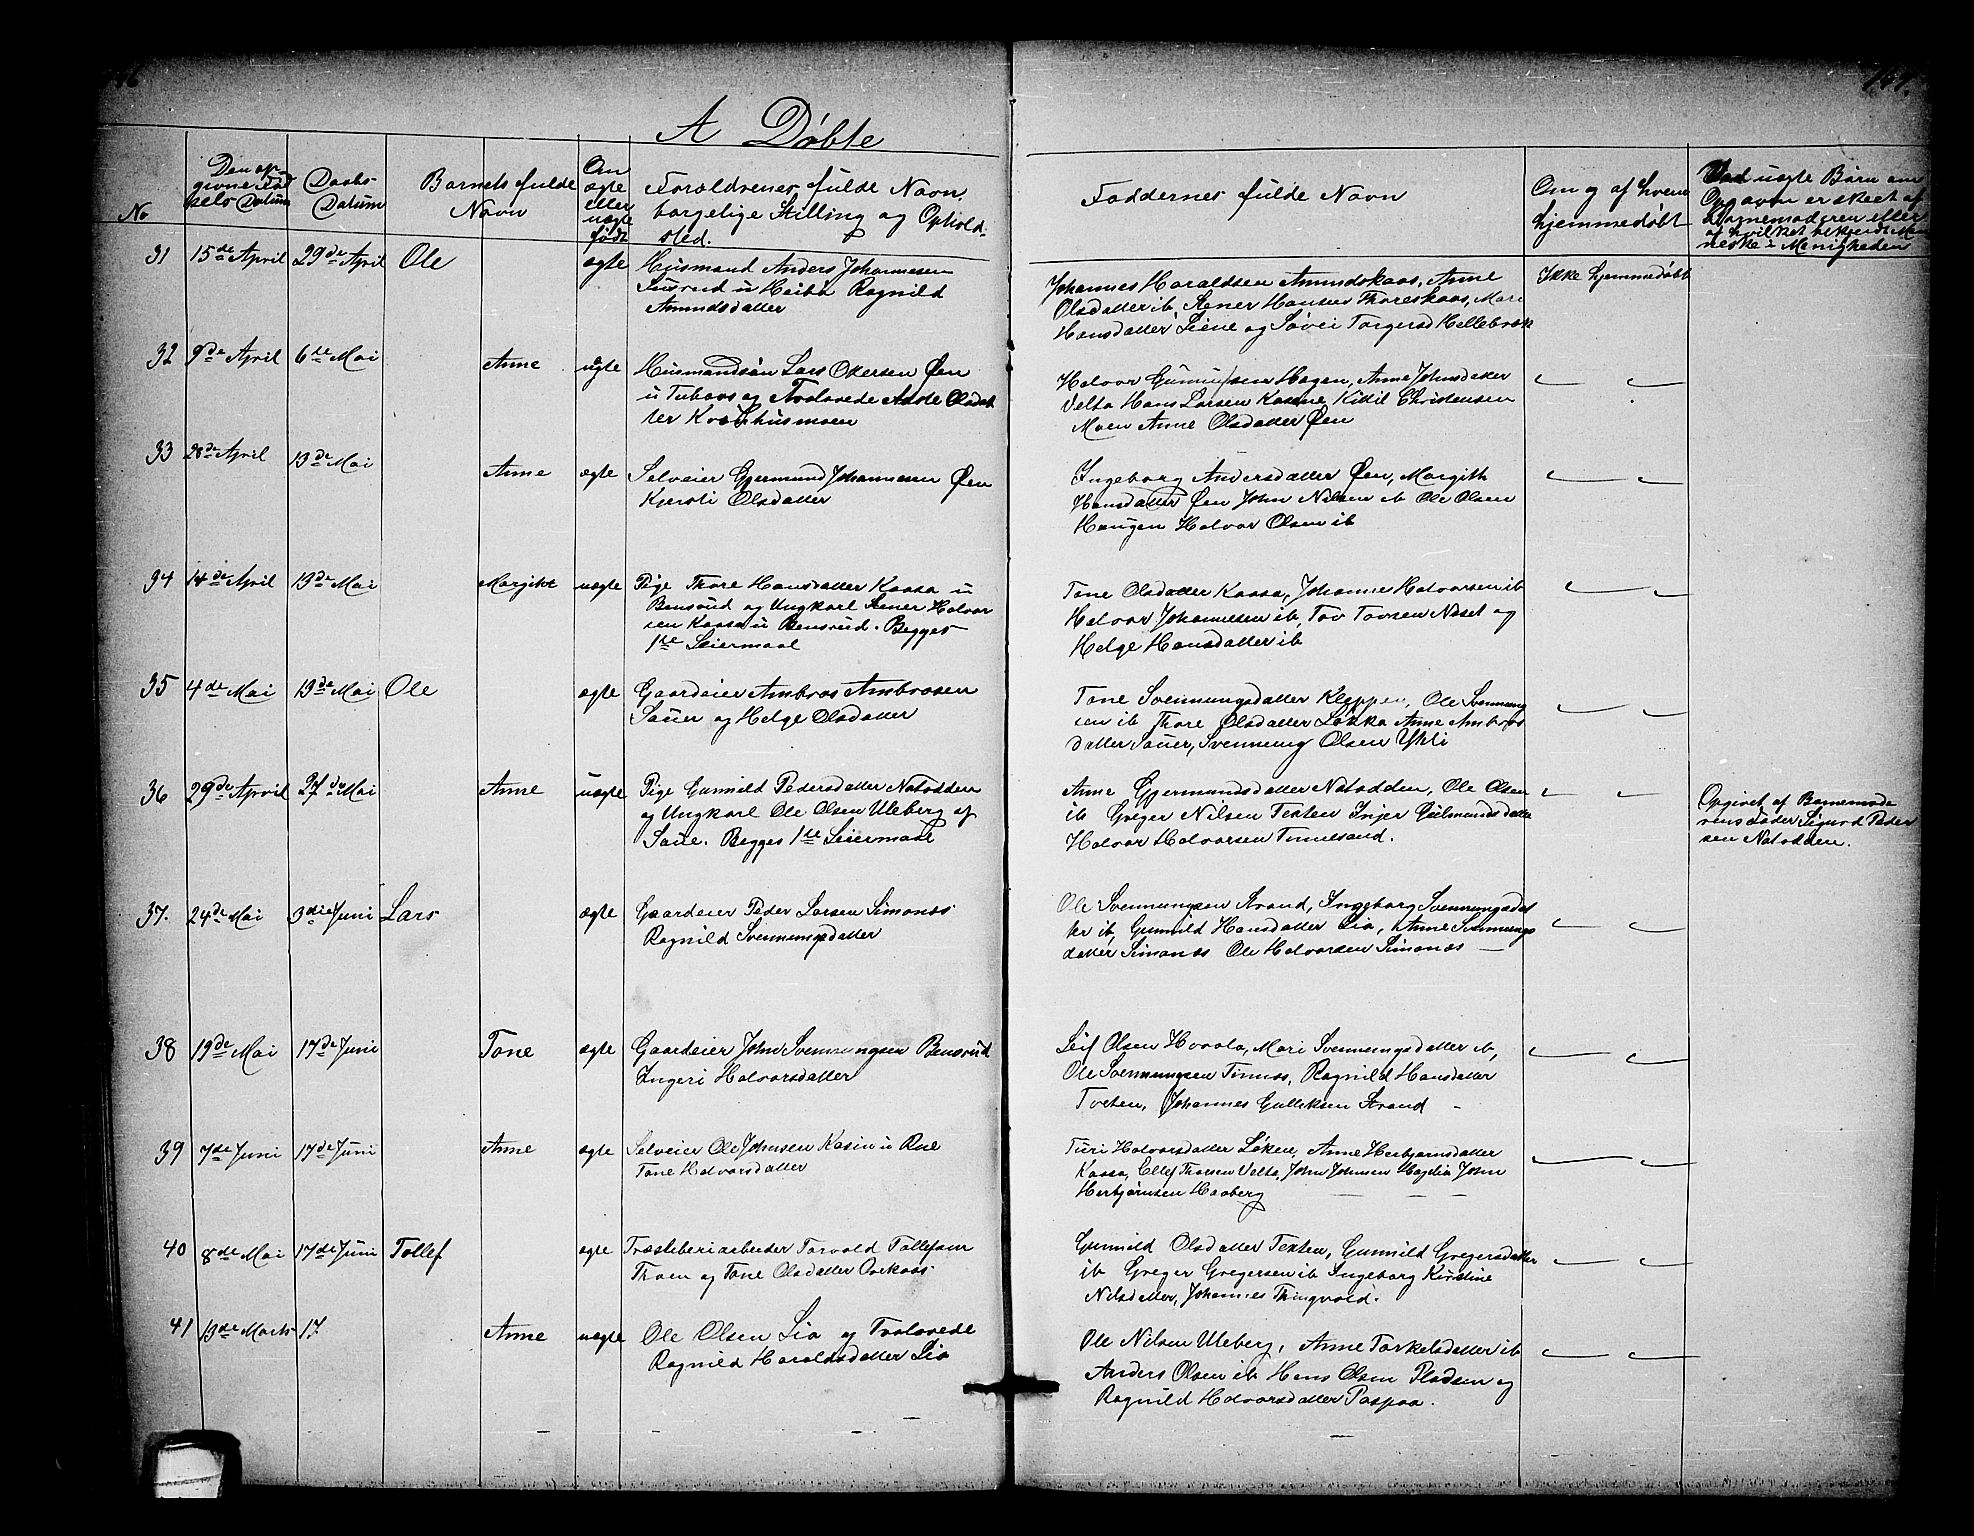 46
147.
A Døbte
No
Den op-
givne Fød
sels Datum
Daabs-
Datum
Barnets fulde
Navn
Om
ægte
eller
uægte
født
Forældrenes fulde Navn,
borgelige Stilling og Ophold-
sted.
Faddernes fulde Navn
Om og af hvem
hjemmedøbt
Ved uægte Børn om
Opgaven er skeet af
Barnemoderen eller
af hvilket bekjendt Men
neske i Menigheden
31 15de April 29de April Ole ægte Husmand Anders Johannesen
u Heibø Ragnild
Amundsdatter
Johannes Haraldsen Amundskaas, Anne
Olsdatter ib, Stener Hansen Thoreskaas, Mari
Hansdatter Leine og Søvei Torgersd Hellebræk
Ikke hjemmedøbt
32 9de April 6te Mai Anne ugte Husmandsøn Lars Olsersen Øen
u Tubaas og Trolovede Aase Olsdat
ter Kvolhusmoen
Halvor Gunnufsen Hagen, Anne Johnsdatter
Velta Hans Larsen Kasene, Kittil Christensen
Moen Anne Olsdatter Øen
33 28de April 13de Mai Anne ægte Selveier Gjermund Johannesen Øen
Kjersti Olsdatter
Ingeborg Andersdatter Øen, Margith
Hansdatter Øen John Nilsen ib Ole Olsen
Haugen Halvor Olsen ib
34 14de April 13de Mai Margith uægte Pige Thore Hansdatter Kaasa u
Bensrud og Ungkarl Stener Halvor
sen Kaasa u Bensrud. Begges
1ste Leiermaal
Tone Olsdatter Kaasa, Johanne Halvorsen ib
Halvor Johannesen ib, Tov Tovsen Næset og
Helge Hansdatter ib
35 4de Mai 13de Mai Ole ægte Gaardeier Ambros Ambrosen
Sauer og Helge Olsdatter
Tone Svennungsdatter Kleppen, Ole Svennung
sen ib Thore Olsdatter Løkka Anne Ambros
datter Sauer, Svennung Olsen Ytrli
36 29de April 27de Mai Anne uægte Pige Gunnild Pedersdatter Notodden
og Ungkarl Ole Olsen Uleberg af
Saue. Begges 1ste Leiermaal
Anne Gjermundsdatter Notodden, Ole Olsen
ib Greger Nilsen Texten Injer Gulmundsdatter
Halvor Halvorsen Tinnesand.
Opgivet af Barnemode
rens Fader Sigurd Peder
sen Notodden.
37. 24de Mai 3die Juni Lars ægte Gaardeier Peder Larsen Simonæs
Ragnild Svennungsdatter
Ole Svennungsen Strand, Ingeborg Svennungsdat
ter ib, Gunnild Hansdatter Lia, Anne Svennungs
datter Simonæs Ole Halvorsen Simonæs
38 19de Mai 17de Juni Tone ægte Gaardeier John Svennungsen Bensrud
Ingeri Halvorsdatter
Leif Olsen Hvaala, Mari Svennungsdatter ib,
Ole Svennungsen Tinnæs, Ragnild Hansdatter
Tveten, Johannes Gulliksen Strand
39 7de Juni 17de Juni Anne ægte Selveier Ole Johnsen Kasin u Rue
Tone Halvorsdatter
Turi Halvorsdatter Løken, Anne Herbjørnsdatter
Kaasa, Ellef Thorsen Velta, John Johnsen Høgelia John
Herbjørnsen Haaberg
40 8de Mai 17de Juni Tollef ægte Træsliberiarbeider Torvald Tollefsen
Thoen og Tone Olsdatter Ovekaas
Gunnild Olsdatter Texten, Gunnild Gregersdatter
ib Greger Gregersen ib Ingeborg Kirstine
Nilsdatter, Johannes Thingvold.
41 13de Marts 17 Anne uægte Ole Olsen Lia og Trolovede
Ragnild Haraldsdatter Lia
Ole Nilsen Uleberg, Anne Torkelsdatter ib
Anders Olsen ib Hans Olsen Pladsen og
Ragnild Halvorsdatter Paspaa.